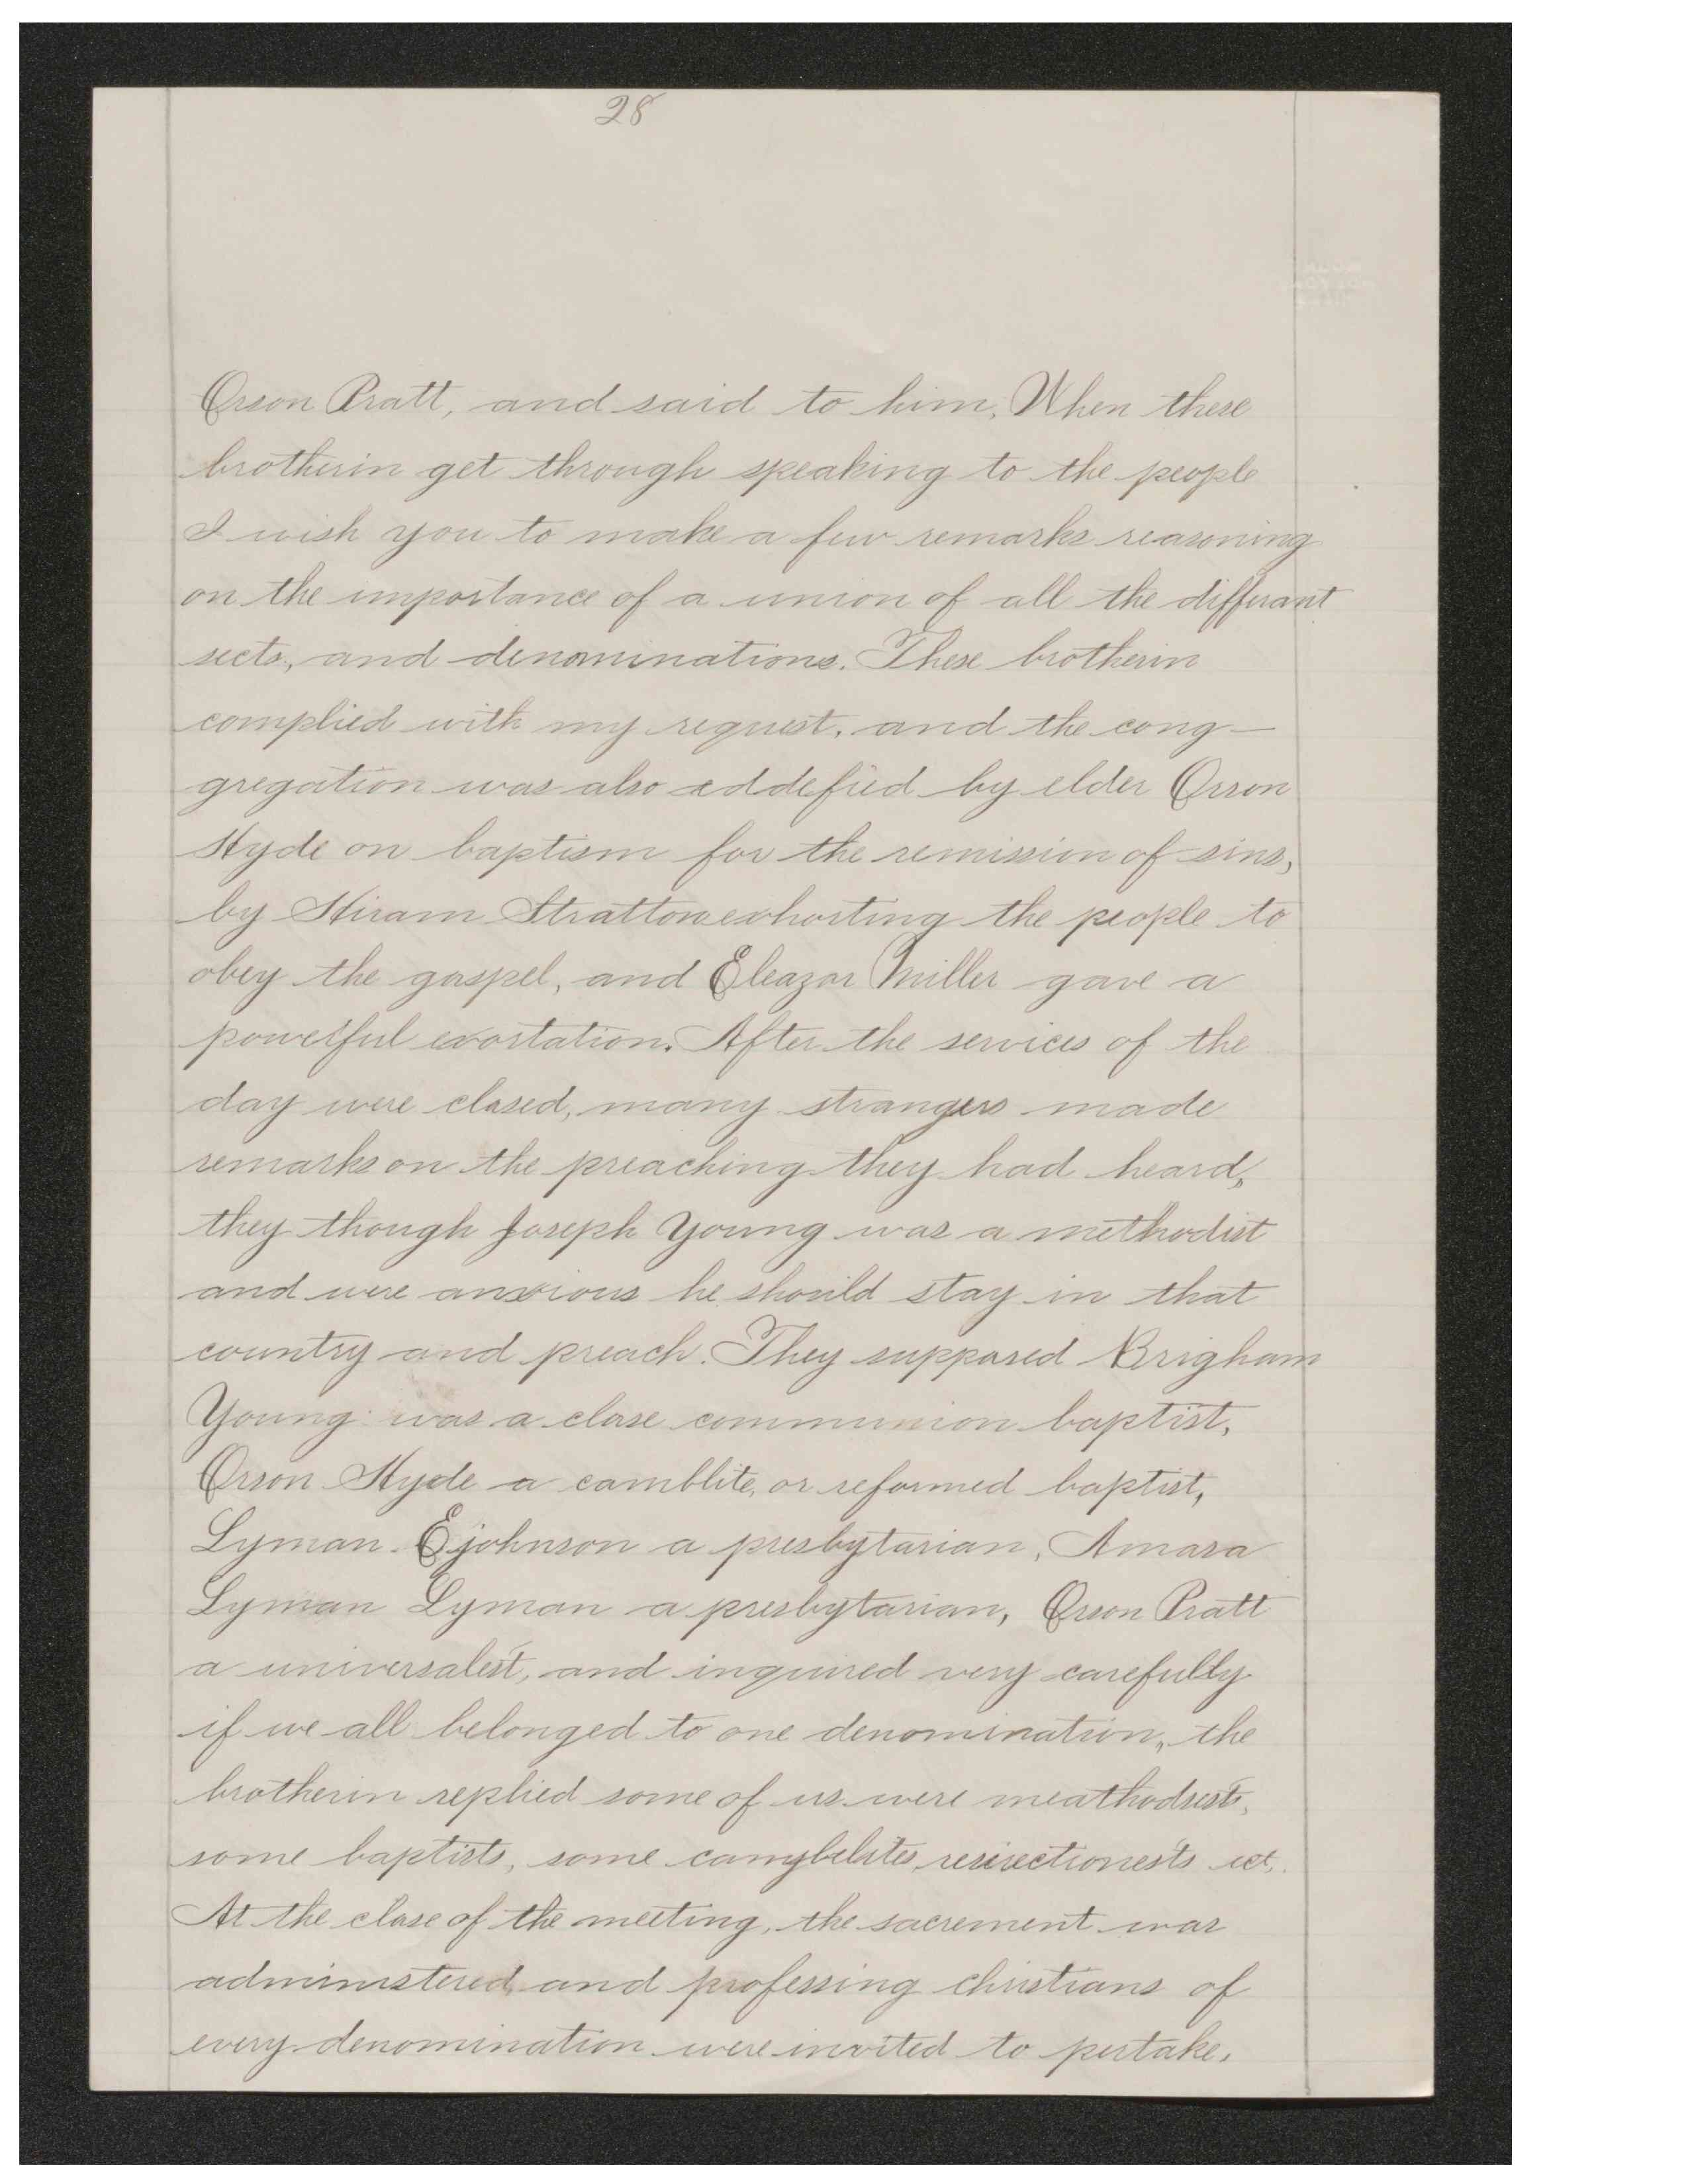 28
Orson Pratt, and said to him, When these
brotherin get through speaking to the people
I wish you to make a few remarks reasoning
on the importance of a union of all the differant
sects, and denominations. These brotherin
complied with my request, and the cong-
gregation was also eddefied by elder Orson
Hyde on baptism for the remission of sins,
by Hiram Stratton exhorting the people to
obey the gospel, and Eleazor Miller gave a
powerful exortation. After the services of the
day were closed, many strangers made
remarks on the preaching they had heard,
they though Joseph Young was a methodist
and were anxious he should stay in that
country and preach. They supposed Brigham
Young was a close communion baptist,
Orson Hyde a camblite, or reformed baptist,
Lyman E johnson a presbytarian, Amasa
Lyman Lyman a presbytarian, Orson Pratt
a universalest, and inquired very carefully
if we all belonged to one denomination, the
brotherin replied some of us were meathodests,
some baptists, some campbelites, resirectionests ect,
At the close of the meeting, the sacrement was
administered, and professing christians of
every denomination were invited to pertake,